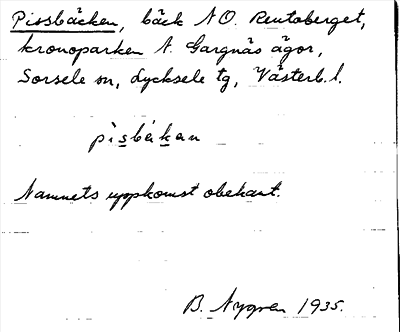 Pissbäcken, bäck N O. Rentoberget,
kronoparken N. Gargnäs ägor,
Sorsele sn, Lycksele tg, Västerb. l.
pìsbékan
Namnets uppkomst obekant.
B. Nygren 1935.